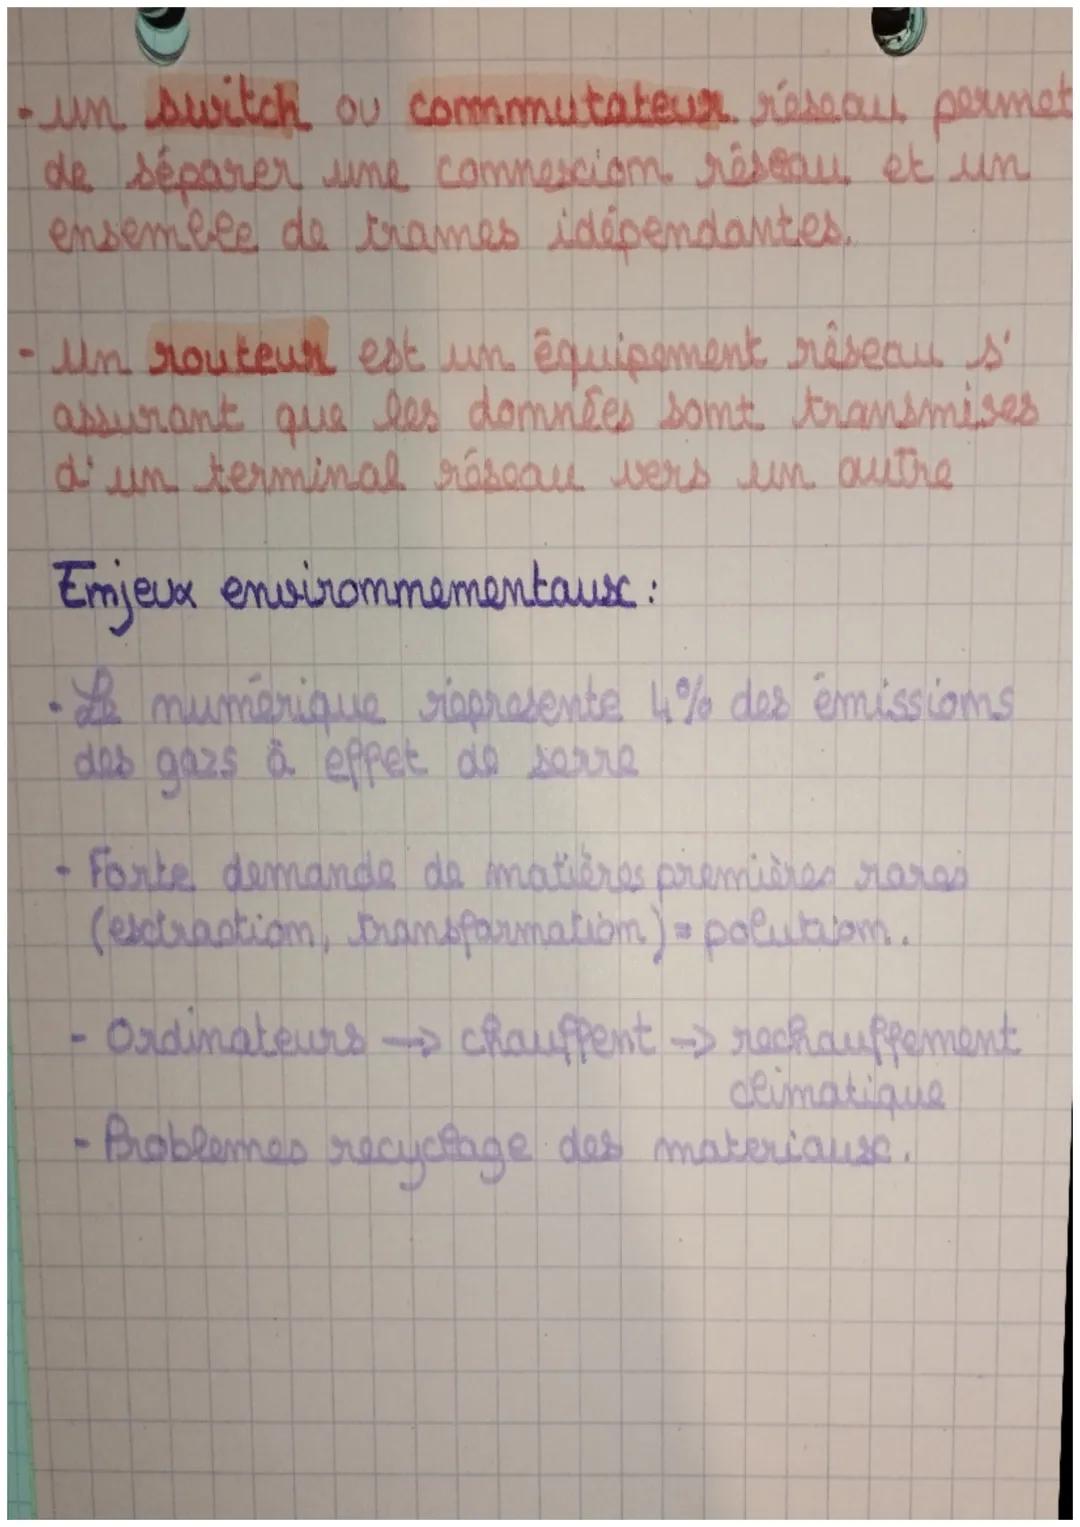 - un switch ou commutateur réseau permet
de séparer une connexion réseau et un
ensemble de trames idépendantes.
- Un routeur est un équipement réseau s'
assurant que les données sont transmises
d'un terminal réseau vers un autre
Enjeux environnementaux :
- Le numérique représente 4% des émissions
des gazs à effet de serre
- Forte demande de matières premières rares
(extraction, transformation) = polution.
- Ordinateurs → chauffent → rechauffement
climatique
- Problemes recyclage des materiaux.